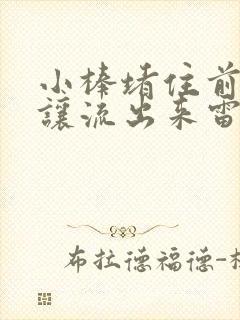 小棒堵住前
讓流出来雷
布拉德福德-杜